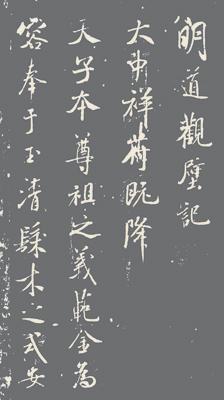 明道觀壁記
太東祥苻既降
天子本尊祖之義範金為
容奉于玉清騄木之式安